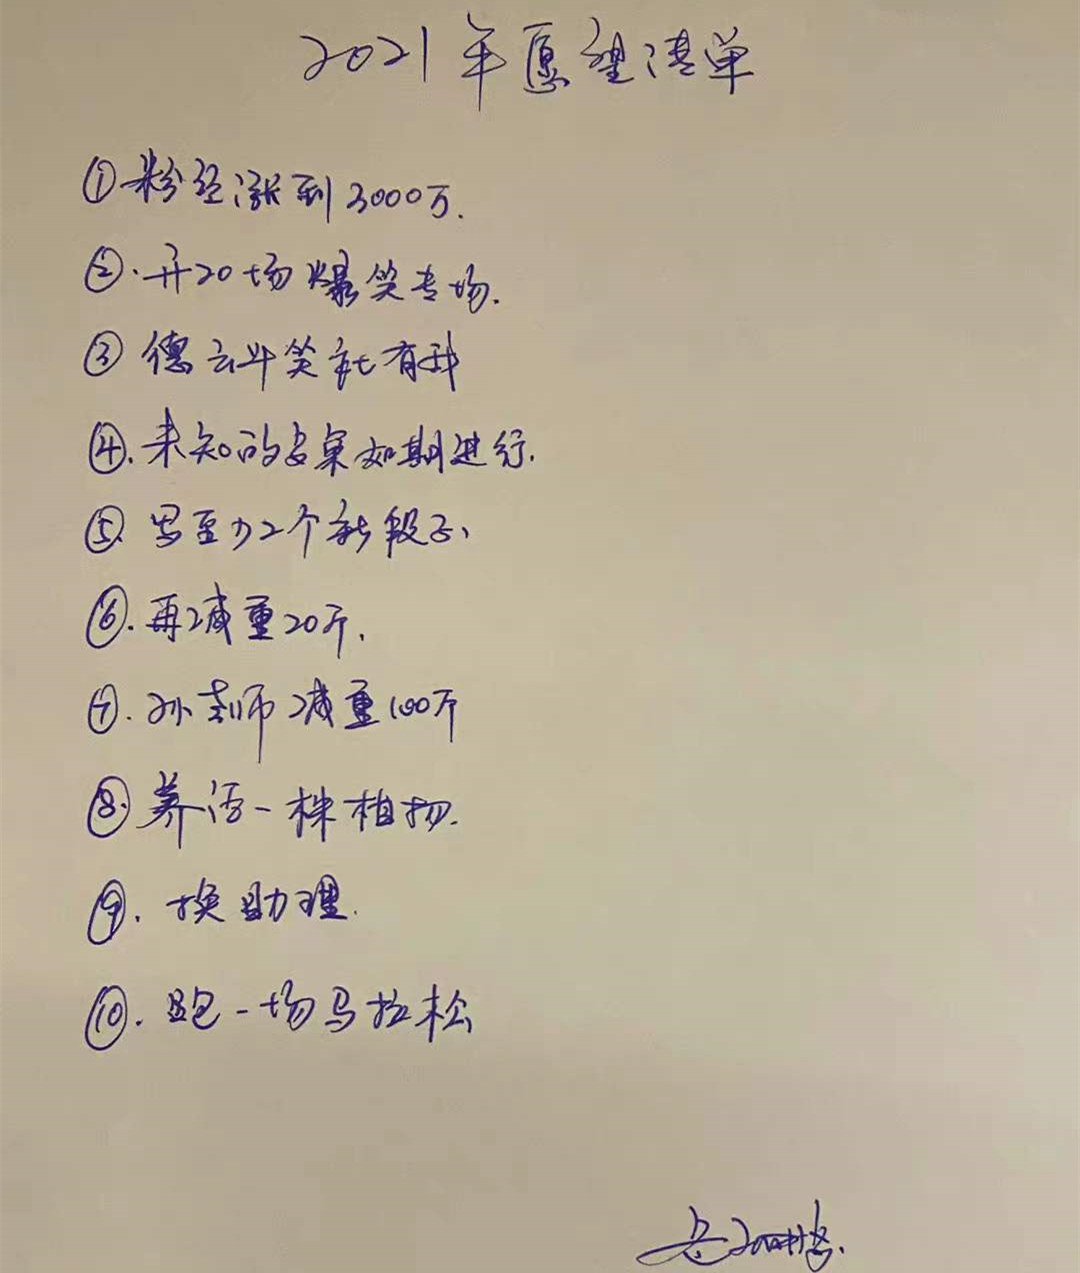 2021年愿望清单
①粉丝涨到3000万.
②.开20场爆笑专场.
③德云斗笑社有我
④.未知的安桌如期进行.
⑤写至少2个新段子、
⑥.再减重20斤.
⑦.孙老师减重100斤
⑧养活一株植物.
⑨.换助理.
⑩.跑一场马拉松
岳云鹏.